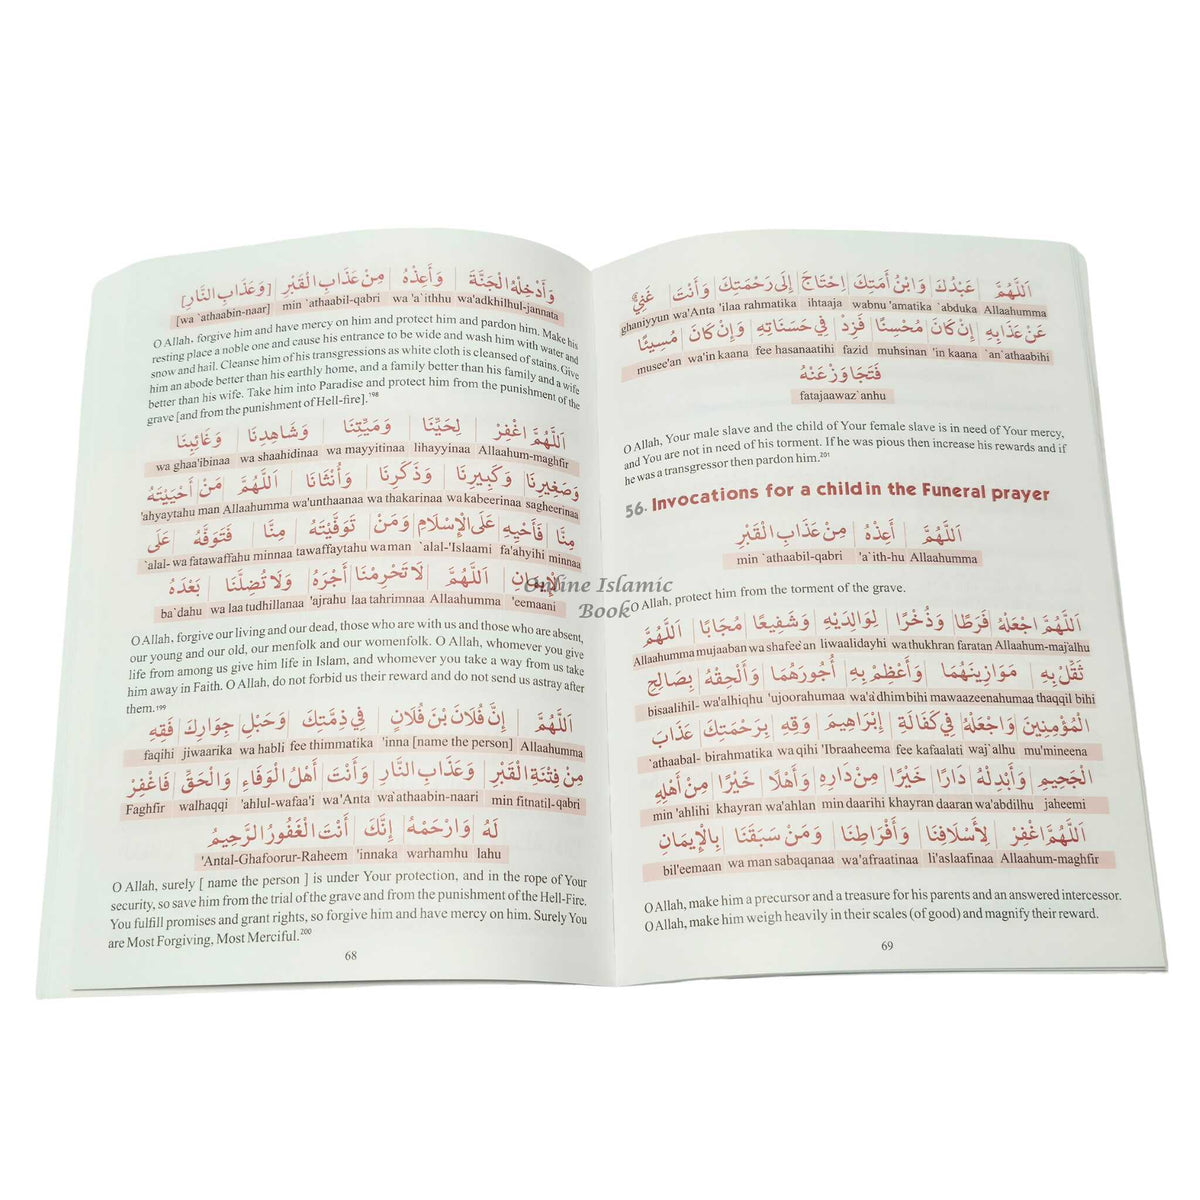 وَأَدْخِلْهُ الْجَنَّةَ وَأَعِذْهُ مِنْ عَذَابِ الْقَبْرِ [وَعَذَابِ النَّارِ]
[wa `athaabin-naar] min `athaabil-qabri wa'a`ithhu wa'adkhilhul-jannata
O Allah, forgive him and have mercy on him and protect him and pardon him. Make his
resting place a noble one and cause his entrance to be wide and wash him with water and
snow and hail. Cleanse him of his transgressions as white cloth is cleansed of stains. Give
him an abode better than his earthly home, and a family better than his family and a wife
better than his wife. Take him into Paradise and protect him from the punishment of the
grave [and from the punishment of Hell-fire].198
اَللّٰهُمَّ اغْفِرْ لِحَيِّنَا وَمَيِّتِنَا وَشَاهِدِنَا وَغَائِبِنَا
wa ghaa'ibinaa wa shaahidinaa wa mayyitinaa lihayyinaa Allaahum-maghfir
وَصَغِيرِنَا وَكَبِيرِنَا وَذَكَرِنَا وَأُنْثَانَا اَللّٰهُمَّ مَنْ أَحْيَيْتَهُ
'ahyaytahu man Allaahumma wa'unthaanaa wa thakarinaa wa kabeerinaa sagheerinaa
مِنَّا فَأَحْيِهِ عَلَى الْإِسْلَامِ وَمَنْ تَوَفَّيْتَهُ مِنَّا فَتَوَفَّهُ عَلَى
`alal- wa fatawaffahu minnaa tawaffaytahu wa man `alal-'Islaami fa'ahyihi minnaa
الْإِيمَانِ اَللّٰهُمَّ لَا تَحْرِمْنَا أَجْرَهُ وَلَا تُضِلَّنَا بَعْدَهُ
ba`dahu wa laa tudhillanaa 'ajrahu laa tahrimnaa Allaahumma 'eemaani
O Allah, forgive our living and our dead, those who are with us and those who are absent,
our young and our old, our menfolk and our womenfolk. O Allah, whomever you give
life from among us give him life in Islam, and whomever you take a way from us take
him away in Faith. O Allah, do not forbid us their reward and do not send us astray after
them.199
اَللّٰهُمَّ إِنَّ فُلَانَ بْنَ فُلَانٍ فِي ذِمَّتِكَ وَحَبْلِ جِوَارِكَ فَقِهِ
faqihi jiwaarika wa habli fee thimmatika 'inna [name the person] Allaahumma
مِنْ فِتْنَةِ الْقَبْرِ وَعَذَابِ النَّارِ وَأَنْتَ أَهْلُ الْوَفَاءِ وَالْحَقِّ فَاغْفِرْ
Faghfir walhaqqi 'ahlul-wafaa'i wa'Anta wa`athaabin-naari min fitnatil-qabri
لَهُ وَارْحَمْهُ إِنَّكَ أَنْتَ الْغَفُورُ الرَّحِيمُ
'Antal-Ghafoorur-Raheem 'innaka warhamhu lahu
O Allah, surely [ name the person ] is under Your protection, and in the rope of Your
security, so save him from the trial of the grave and from the punishment of the Hell-Fire.
You fulfill promises and grant rights, so forgive him and have mercy on him. Surely You
are Most Forgiving, Most Merciful.200
68
اَللّٰهُمَّ عَبْدُكَ وَابْنُ أَمَتِكَ اِحْتَاجَ إِلَى رَحْمَتِكَ وَأَنْتَ غَنِيٌّ
ghaniyyun wa'Anta 'ilaa rahmatika ihtaaja wabnu 'amatika `abduka Allaahumma
عَنْ عَذَابِهِ إِنْ كَانَ مُحْسِنًا فَزِدْ فِي حَسَنَاتِهِ وَإِنْ كَانَ مُسِيئًا
musee'an wa'in kaana fee hasanaatihi fazid muhsinan 'in kaana `an`athaabihi
فَتَجَاوَزْ عَنْهُ
fatajaawaz`anhu
O Allah, Your male slave and the child of Your female slave is in need of Your mercy,
and You are not in need of his torment. If he was pious then increase his rewards and if
he was a transgressor then pardon him.201
56. Invocations for a child in the Funeral prayer
اَللّٰهُمَّ أَعِذْهُ مِنْ عَذَابِ الْقَبْرِ
min `athaabil-qabri 'a`ith-hu Allaahumma
O Allah, protect him from the torment of the grave.
اَللّٰهُمَّ اجْعَلْهُ فَرَطًا وَذُخْرًا لِوَالِدَيْهِ وَشَفِيعًا مُجَابًا اَللّٰهُمَّ
Allaahumma mujaaban wa shafee`an liwaalidayhi wa thukhran faratan Allaahum-maj`alhu
ثَقِّلْ بِهِ مَوَازِينَهُمَا وَأَعْظِمْ بِهِ أُجُورَهُمَا وَأَلْحِقْهُ بِصَالِحِ
bisaalihil- wa'alhiqhu 'ujoorahumaa wa'a`dhim bihi mawaazeenahumaa thaqqil bihi
الْمُؤْمِنِينَ وَاجْعَلْهُ فِي كَفَالَةِ إِبْرَاهِيمَ وَقِهِ بِرَحْمَتِكَ عَذَابَ
`athaabal- birahmatika wa qihi 'Ibraaheema fee kafaalati waj`alhu mu'mineena
الْجَحِيمِ وَأَبْدِلْهُ دَارًا خَيْرًا مِنْ دَارِهِ وَأَهْلًا خَيْرًا مِنْ أَهْلِهِ
min 'ahlihi khayran wa'ahlan min daarihi khayran daaran wa'abdilhu jaheemi
اَللّٰهُمَّ اغْفِرْ لِأَسْلَافِنَا وَأَفْرَاطِنَا وَمَنْ سَبَقَنَا بِالْإِيمَانِ
bil'eemaan wa man sabaqanaa wa'afraatinaa li'aslaafinaa Allaahum-maghfir
O Allah, make him a precursor and a treasure for his parents and an answered intercessor.
O Allah, make him weigh heavily in their scales (of good) and magnify their reward.
69
Online Islamic
Book